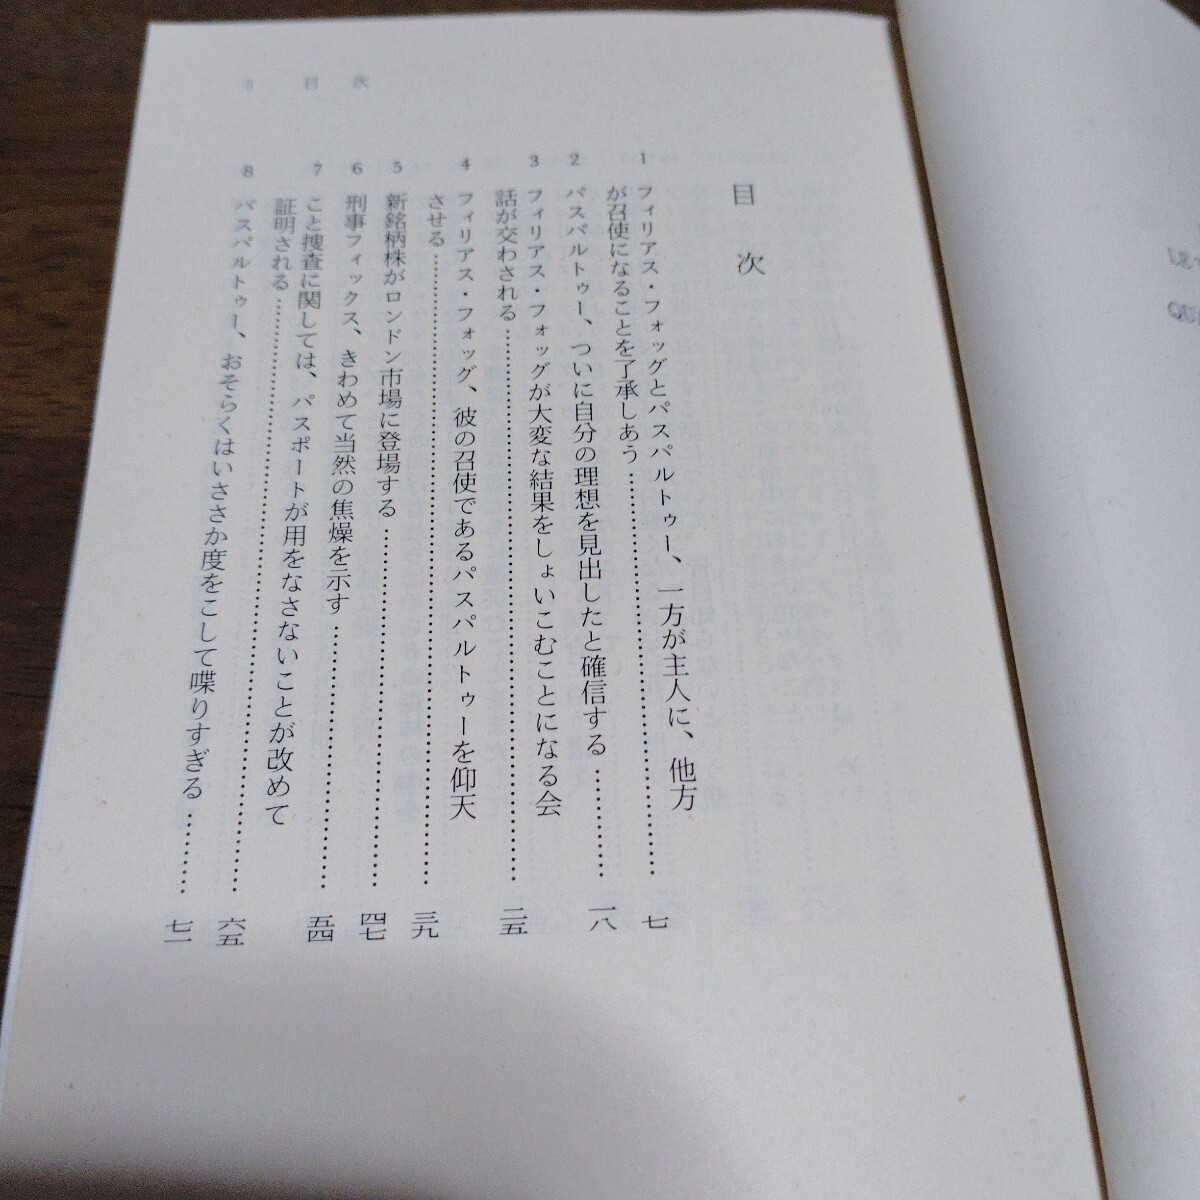 目次
1 フィリアス・フォッグとパスパルトゥー、一方が主人に、他方
が召使になることを了承しあう……………………七
2 パスパルトゥー、ついに自分の理想を見出したと確信する………一八
3 フィリアス・フォッグが大変な結果をしょいこむことになる会
話が交わされる……………………二五
4 フィリアス・フォッグ、彼の召使であるパスパルトゥーを仰天
させる……………………三九
5 新銘柄株がロンドン市場に登場する……………………四七
6 刑事フィックス、きわめて当然の焦燥を示す……………………五四
7 こと捜査に関しては、パスポートが用をなさないことが改めて
証明される……………………六五
8 パスパルトゥー、おそらくはいささか度をこして喋りすぎる………七一
目次
3
LE
QU